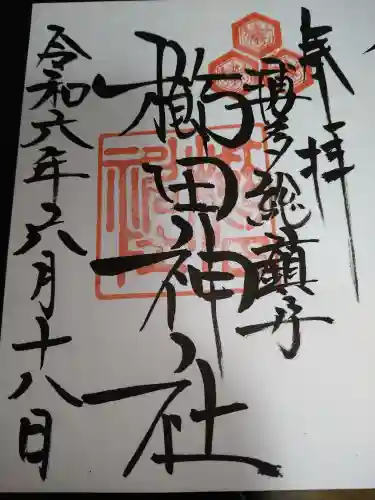 奉拝
博多総鎮守
櫛田神社
令和六年六月十八日